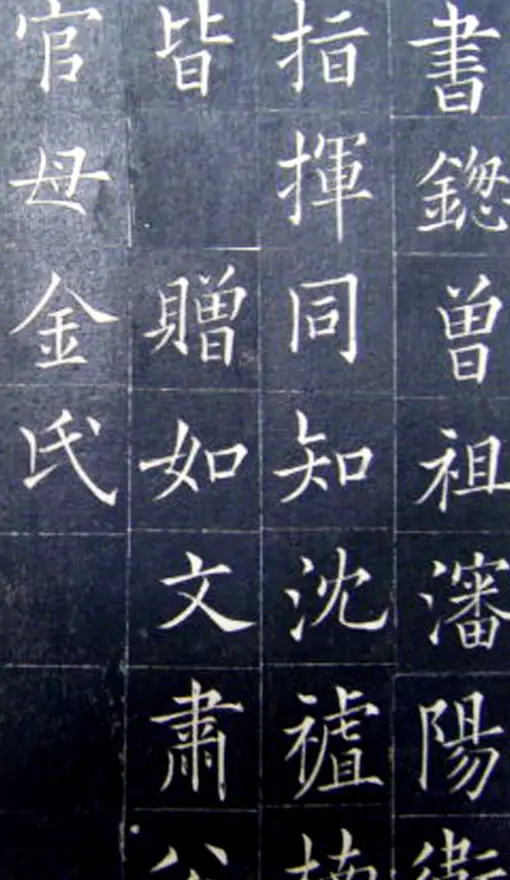 書鍯曾祖瀋陽衛
指揮同知沈
皆 贈如文肅公
官母金氏